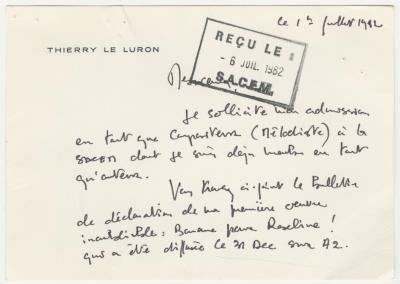 le 1er juillet 1982
THIERRY LE LURON
REÇU LE
- 6 JUIL. 1982
S.A.C.E.M.
Messieurs,
Je sollicite mon admission
en tant que compositeur (Mélodiste) à la
SACEM dont je suis déjà membre en tant
qu'auteur.
Vous trouverez ci-joint le Bulletin
de déclaration de ma première oeuvre
inoubliable : Banane pour Roseline !
qui a été diffusée le 31 Dec sur A2.